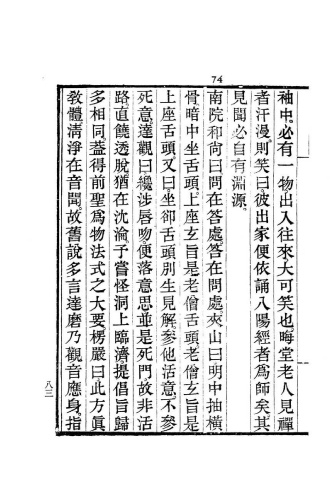 74
袖中。必有一物出入往來。大可笑也。晦堂老人見禪
者汗漫。則笑曰。彼出家便依誦八陽經者爲師矣。其
見聞必自有淵源。
南院和尚曰。問在答處。答在問處。夾山曰。明中抽橫
骨。暗中坐舌頭。上座玄旨是老僧舌頭。老僧玄旨是
上座舌頭。又曰。坐卻舌頭。別生見解。參他活意。不參
死意。達觀曰。纔涉唇吻。便落意思。並是死門。故非活
路。直饒透脫。猶在沈淪。予嘗怪洞上臨濟提倡旨歸
多相同。蓋得前聖爲物法式之大要。楞嚴曰。此方眞
教體。清淨在音聞。故舊說多言達磨乃觀音應身。指
八三